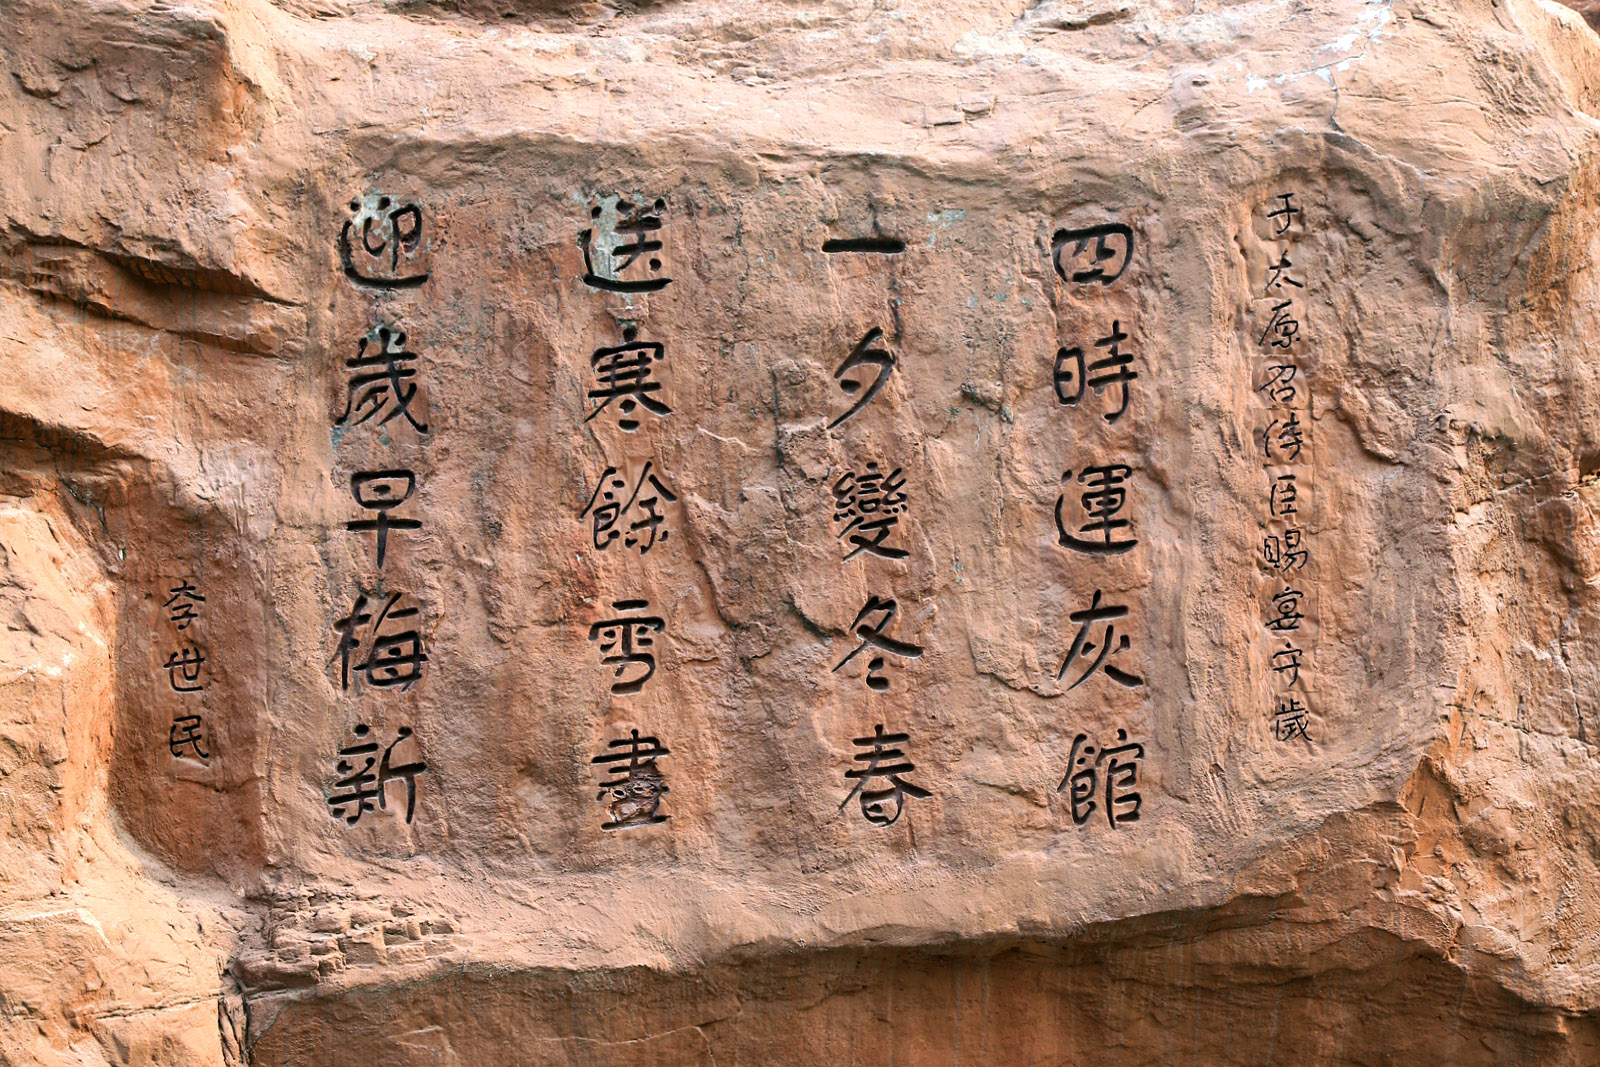 于太原召侍臣賜宴守歲
四時運灰館
一夕變冬春
送寒餘雪晝
迎歲早梅新
李世民